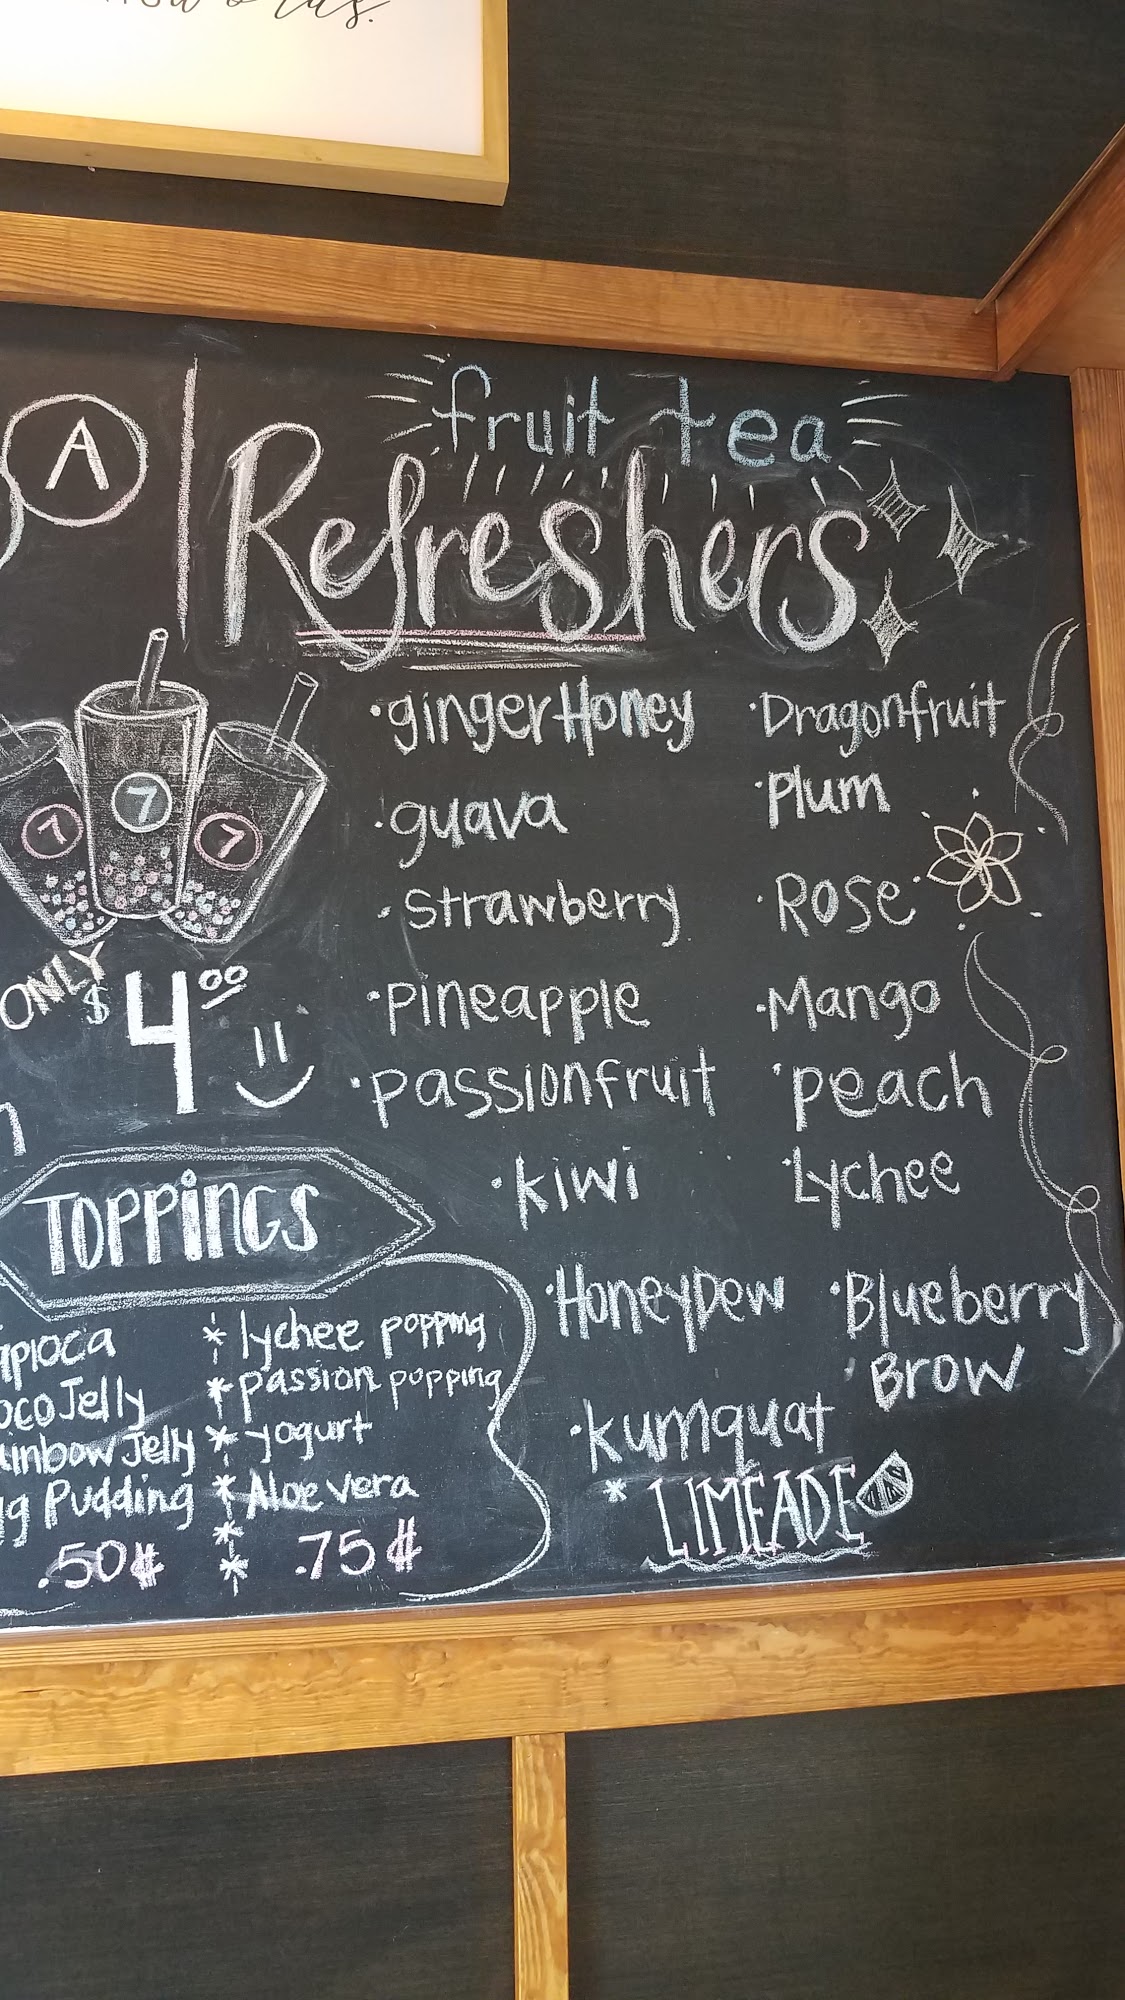 A
fruit tea
Refreshers
7 7 7
ONLY $4.00
TOPPINGS
apioca
ocoJelly
ainbow Jelly
g Pudding
.50¢
* lychee popping
* passion popping
* yogurt
* Aloe vera
*
*
.75¢
·gingerHoney
·guava
·strawberry
·Pineapple
·passionfruit
·kiwi
·HoneyDew
·kumquat
* LIMEADE
·Dragonfruit
·Plum
·Rose
·Mango
·peach
·Lychee
·Blueberry
·BROW